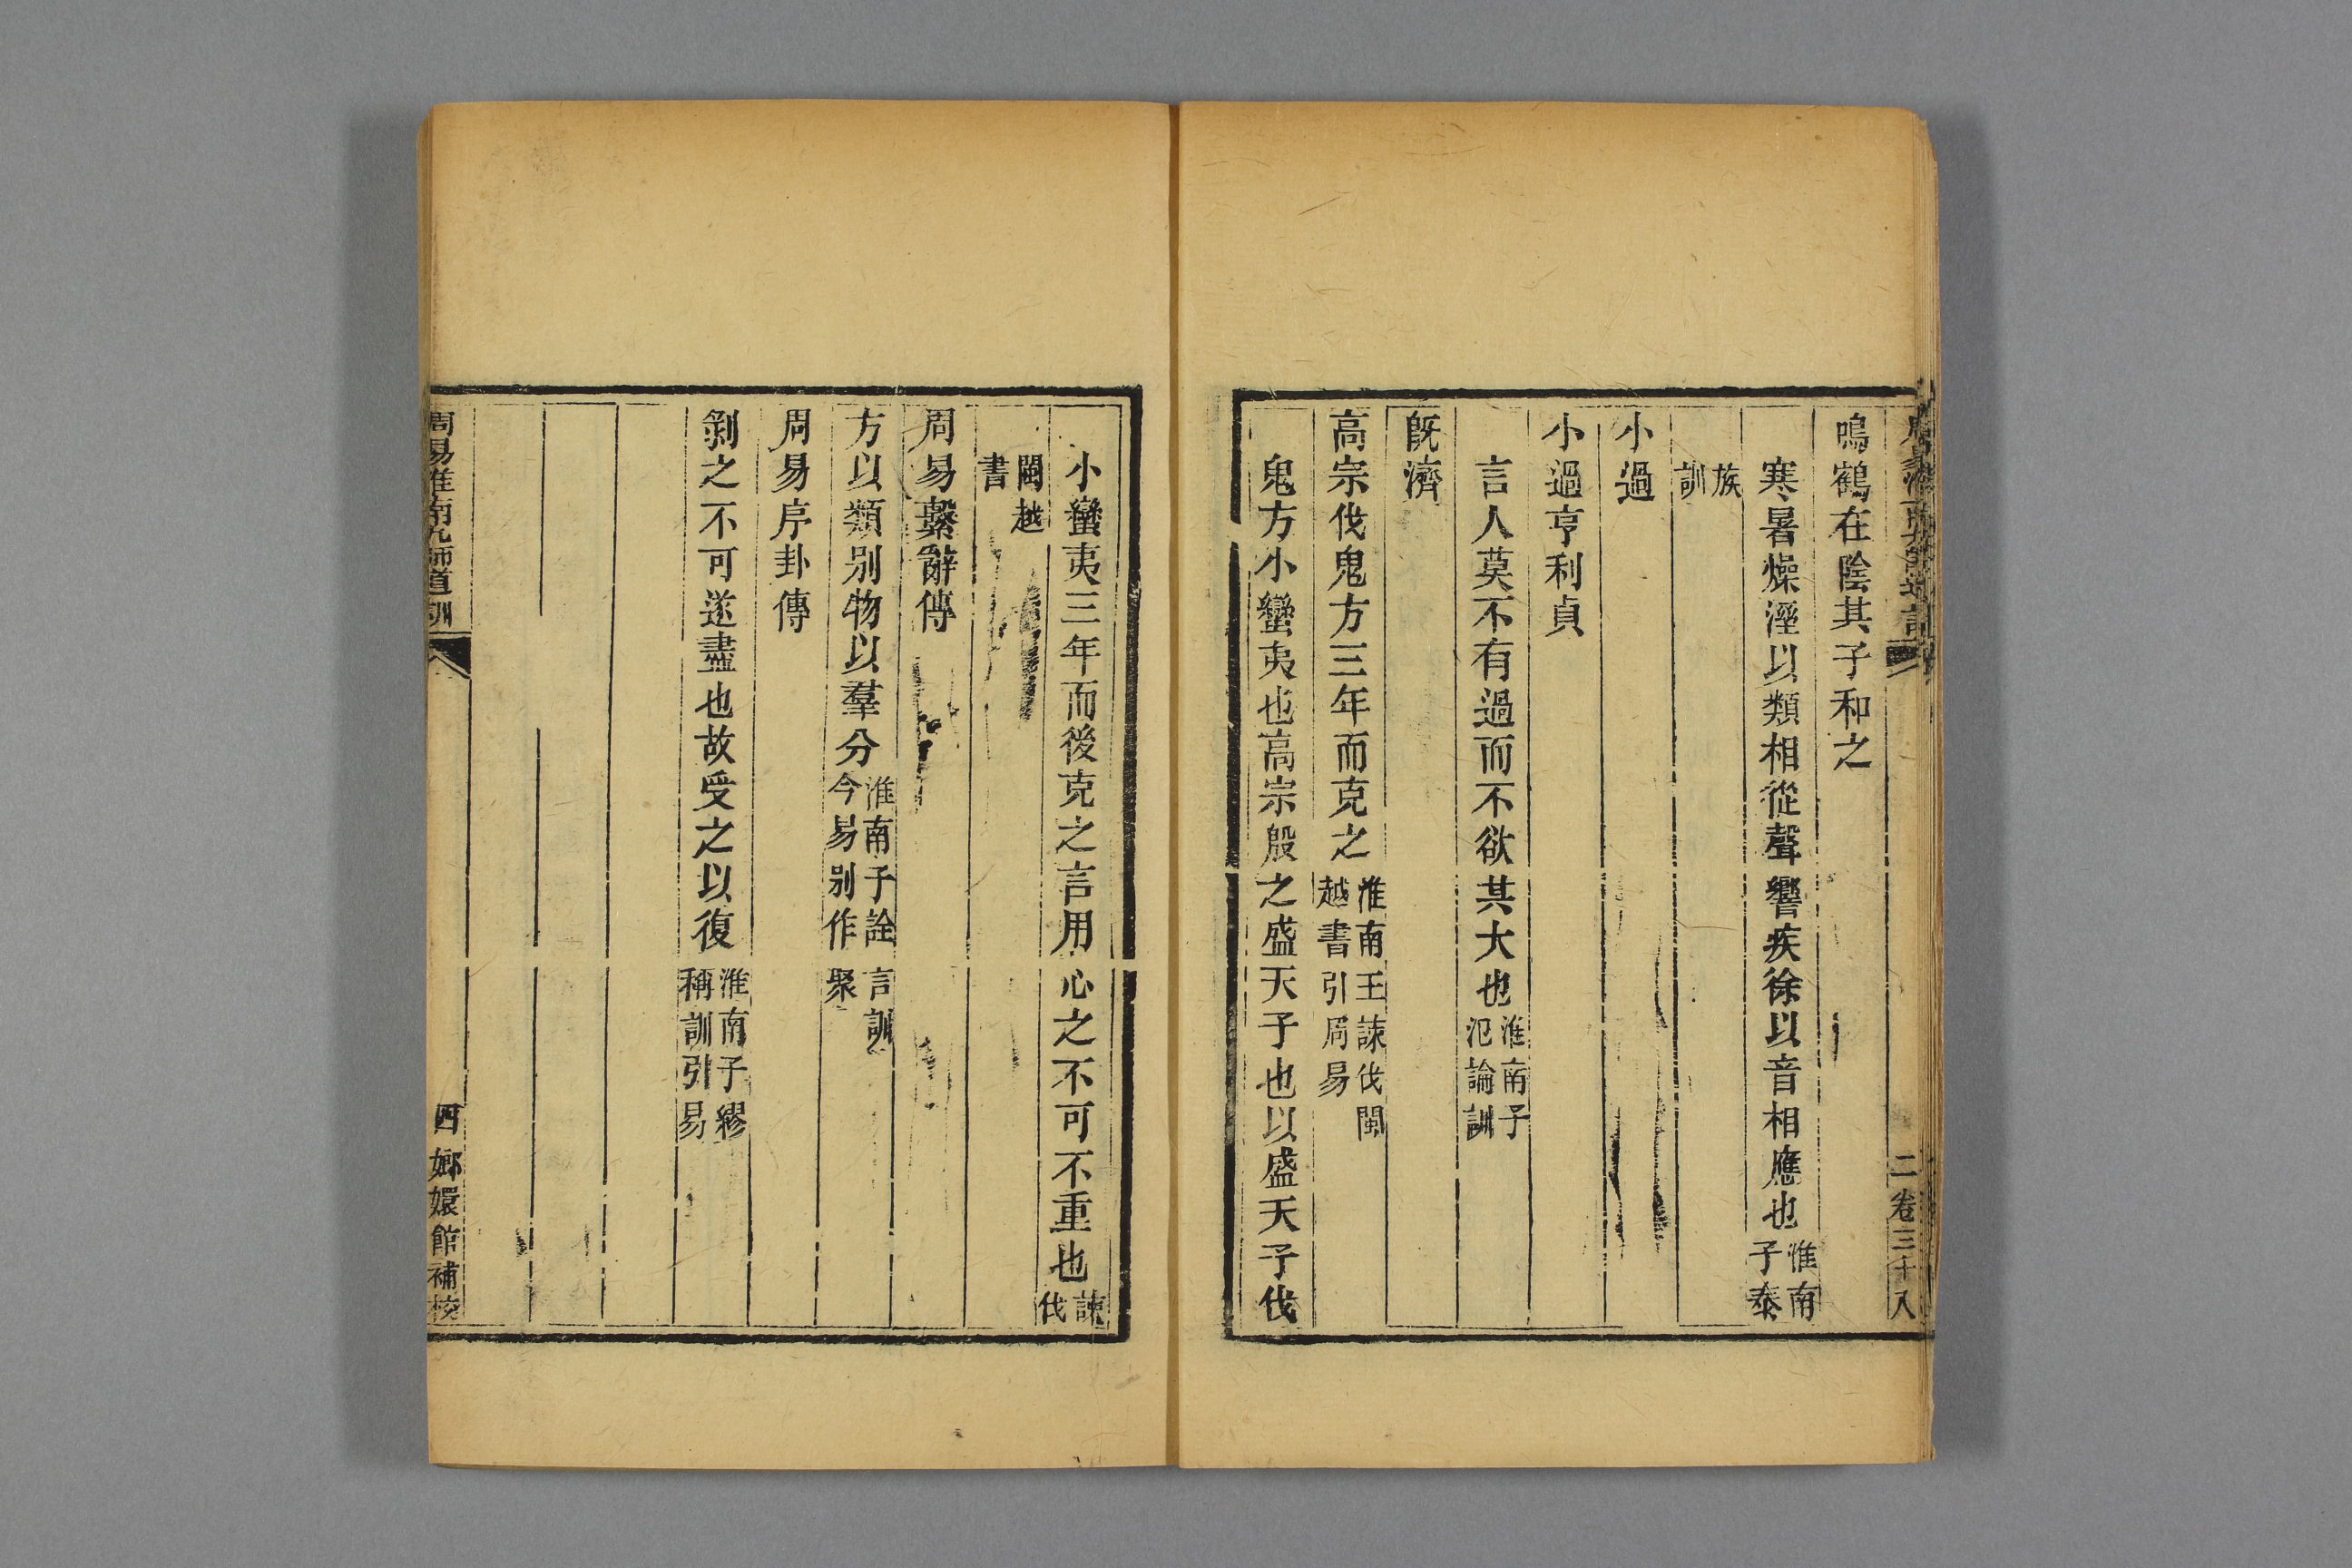 鳴鶴在陰其子和之
寒暑燥溼以類相從聲響疾徐以音相應也淮南子泰
族訓
小過
小過亨利貞
言人莫不有過而不欲其大也淮南子氾論訓
旣濟
高宗伐鬼方三年而克之淮南王諫伐閩越書引周易
鬼方小蠻夷也高宗殷之盛天子也以盛天子伐
小蠻夷三年而後克之言用心之不可不重也諫伐
閩越書
周易繫辭傳
方以類別物以羣分淮南子詮言訓今易別作聚
周易序卦傳
剝之不可遂盡也故受之以復淮南子繆稱訓引易
周易淮南九師道訓
四 嫏嬛館補校